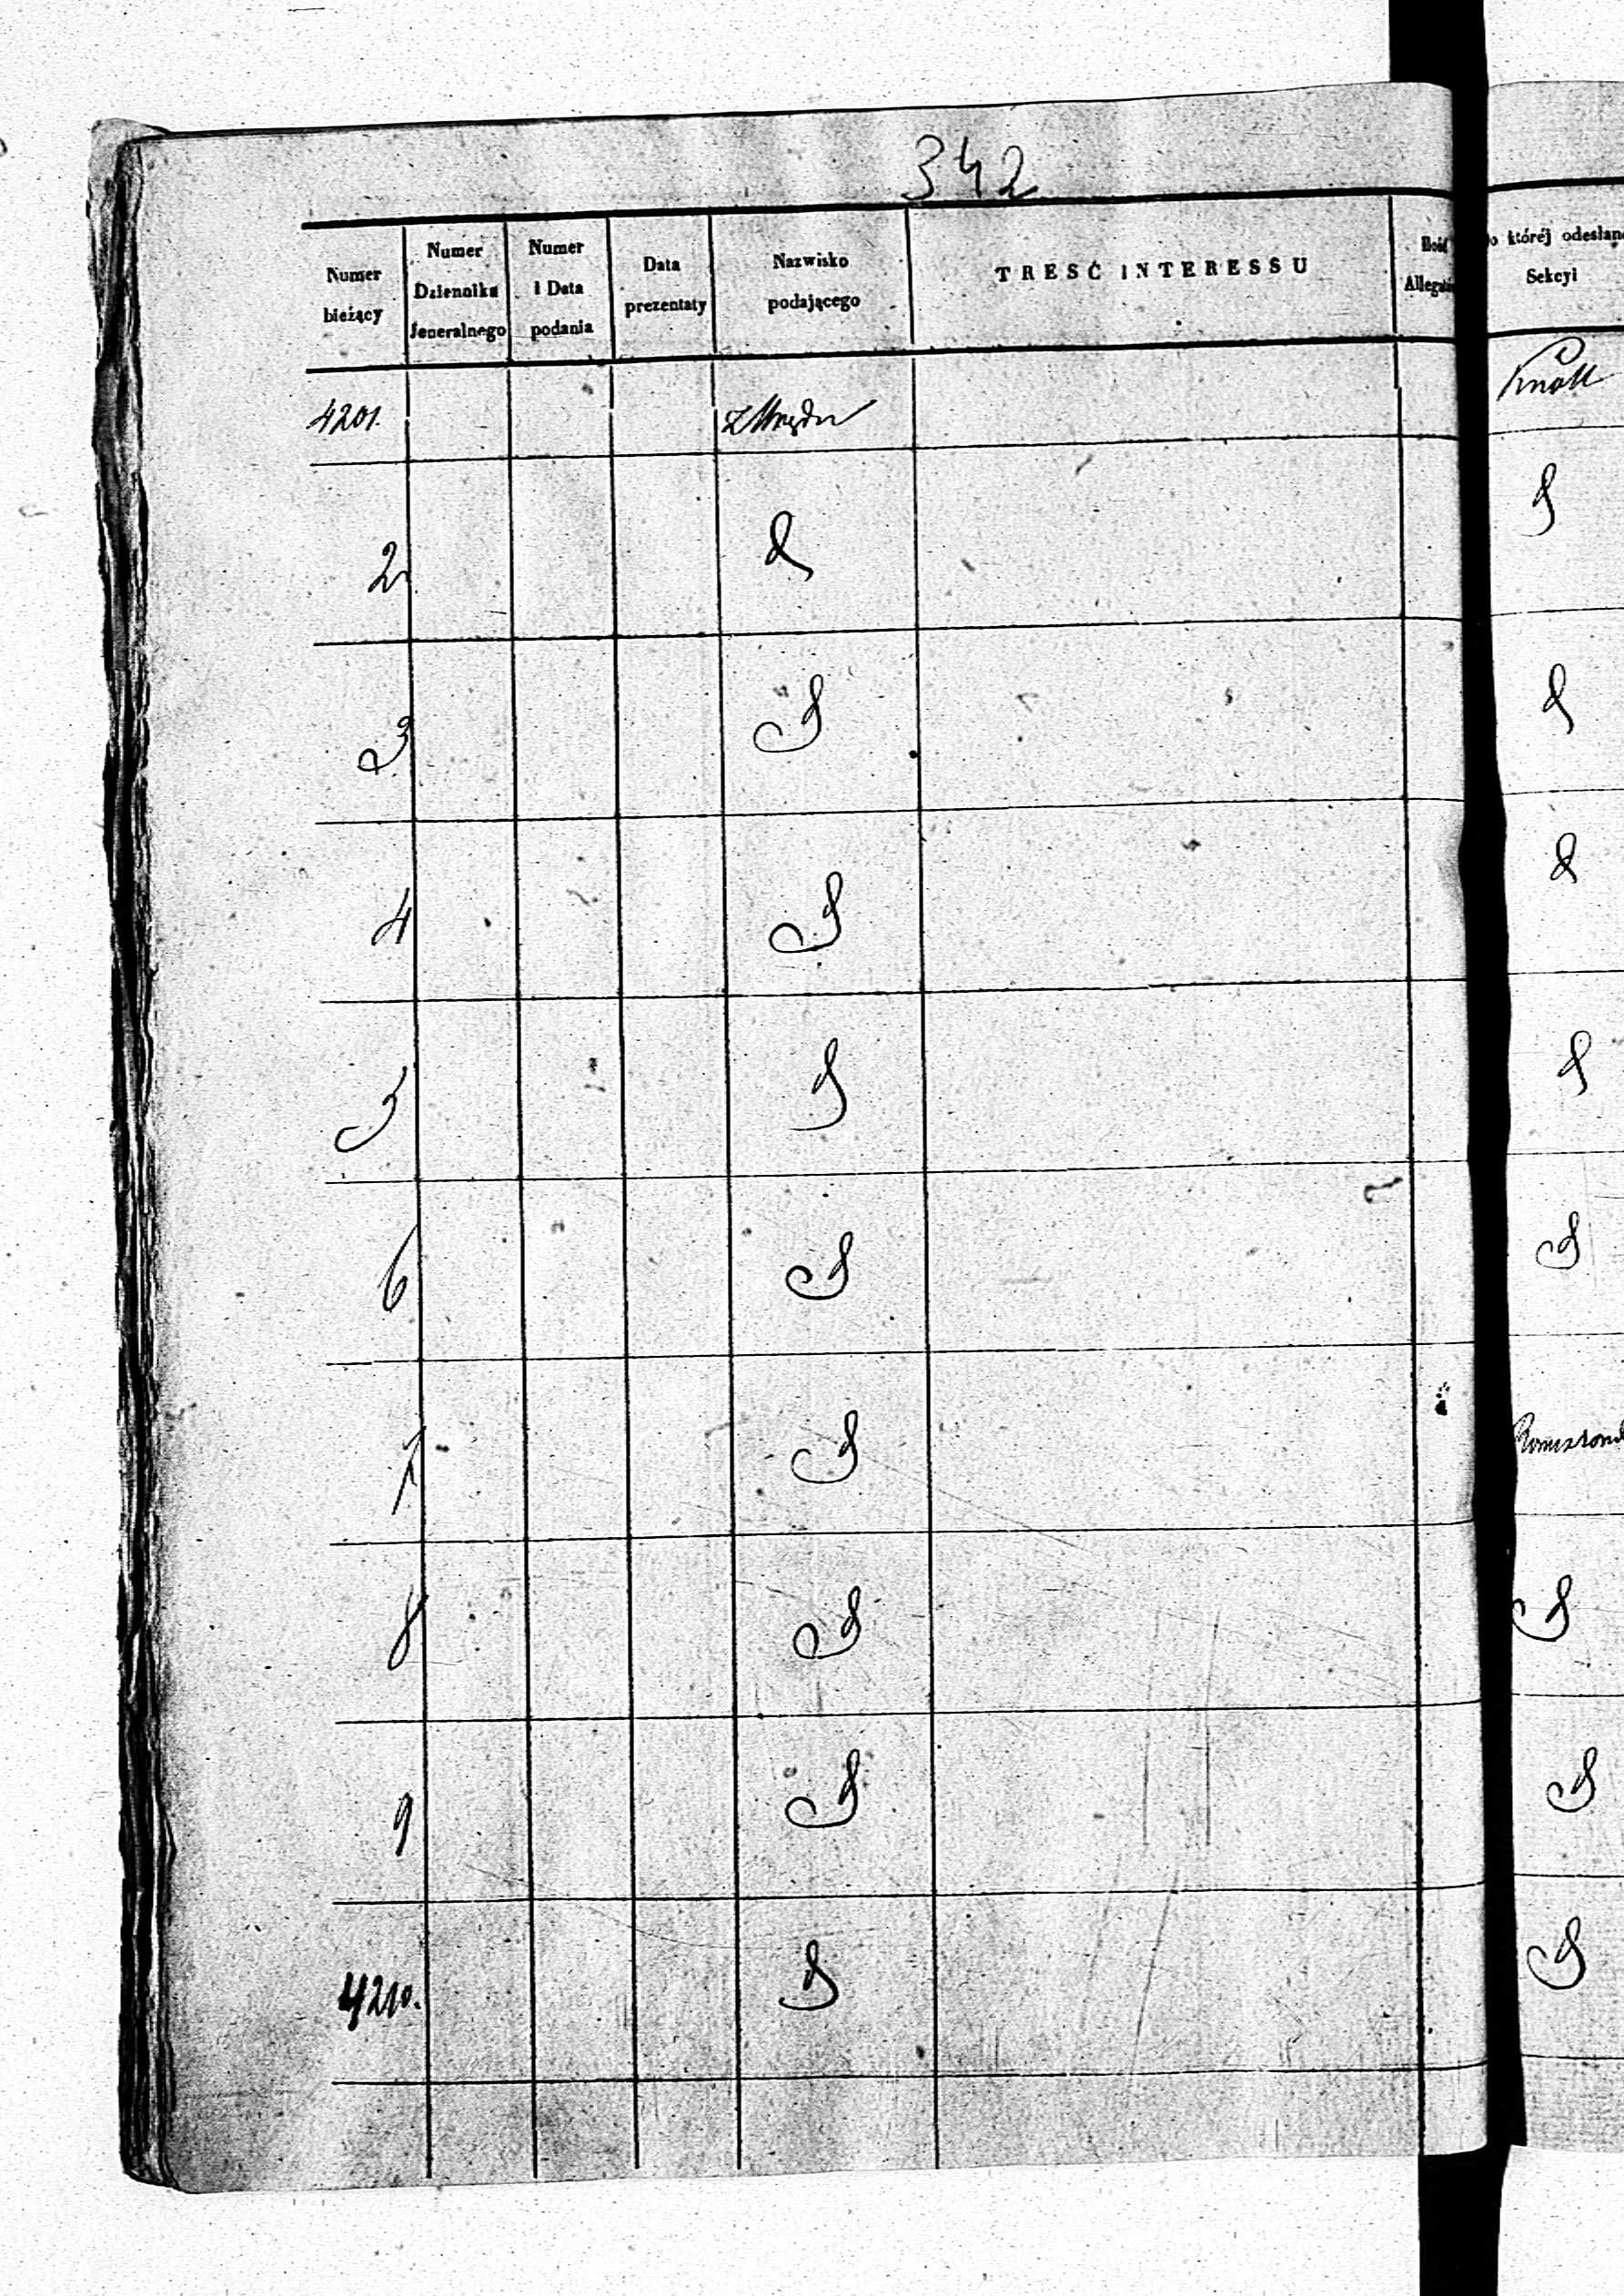 342
Numer bieżący
Numer Dziennika Jeneralnego
Numer i Data podania
Data prezentaty
Nazwisko podającego
TRESĆ INTERESSU
Ilość Allegatów
któréj odesłan
Sekcyi
4201. Z Urzędu
2
3
4
5
6
7
8
9
4210.